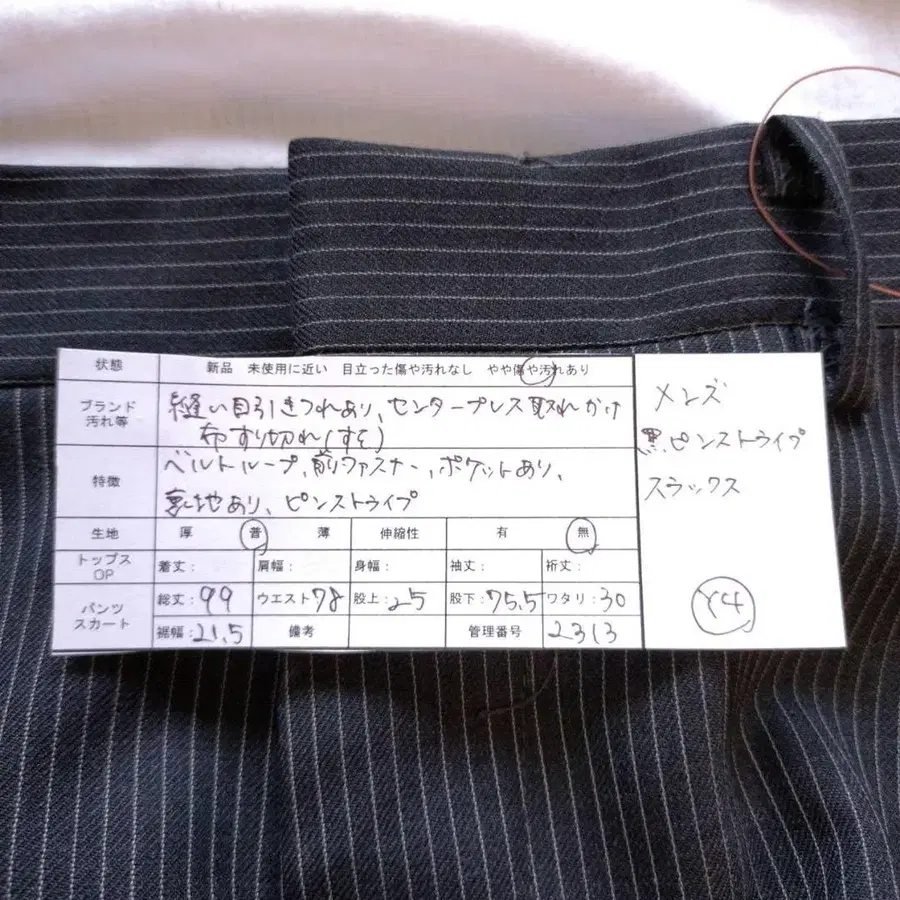 状態 新品 未使用に近い 目立った傷や汚れなし やや傷や汚れあり
ブランド
汚れ等
縫い目引きつれあり、センタープレス取れかけ
布すり切れ(すそ)
特徴
ベルトループ、前ファスナー、ポケットあり、
裏地あり、ピンストライプ
生地 厚 普 薄 伸縮性 有 無
トップス
OP
着丈: 肩幅: 身幅: 袖丈: 裄丈:
パンツ
スカート
総丈:99 ウエスト78 股上:25 股下:75.5 ワタリ:30
裾幅:21.5 備考 管理番号 2313
メンズ
黒、ピンストライプ
スラックス
Y4